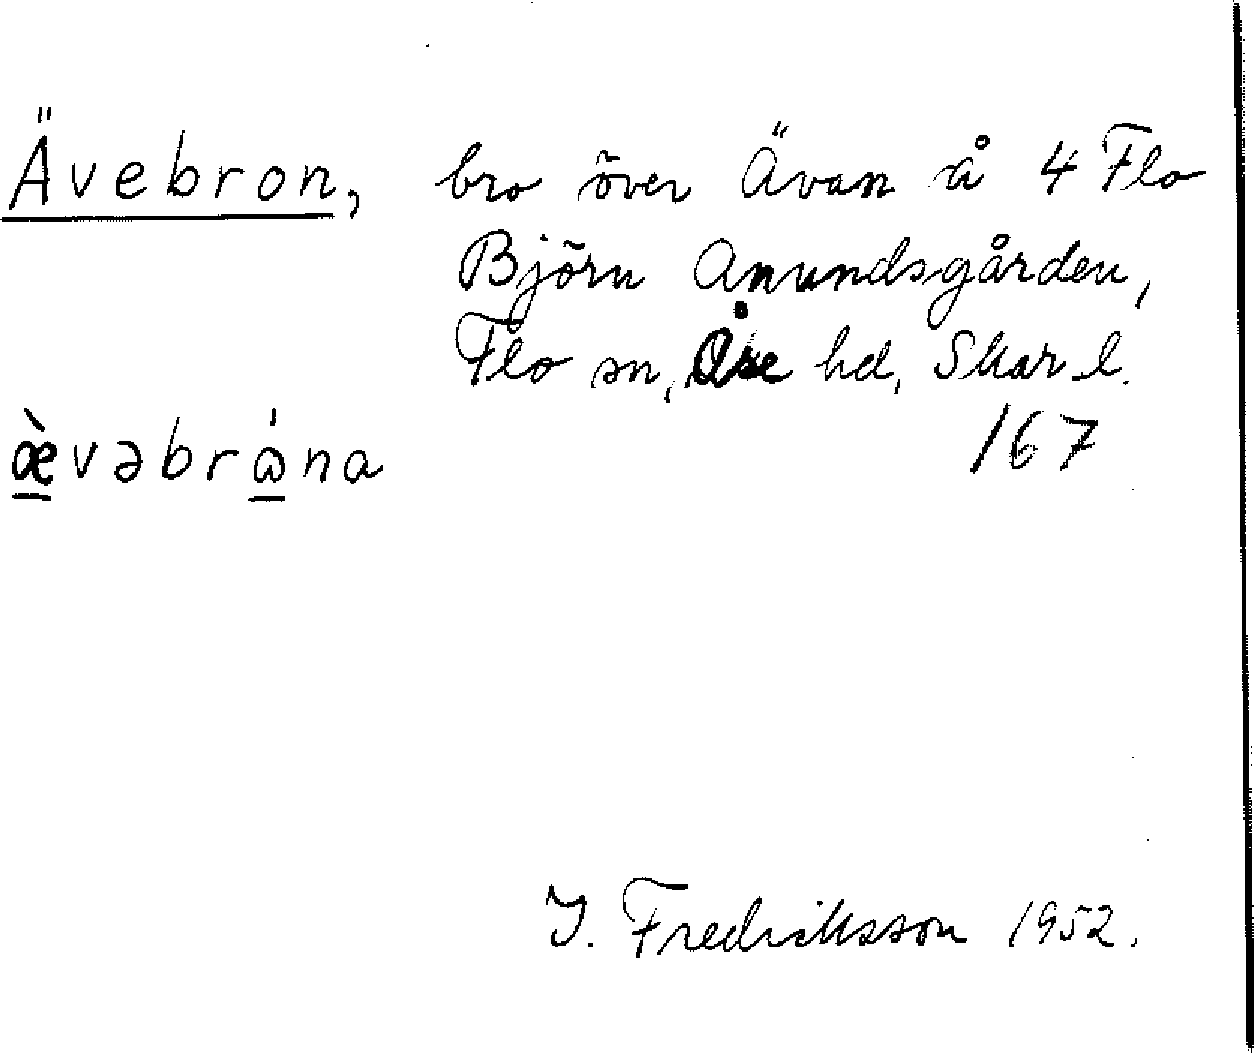 Ävebron, bro över Ävan å 4 Flo
Björn Anundsgården,
Flo sn, Åse hd, Skar. l.
æ̀vəbrɷ́na 167
I. Fredriksson 1952.